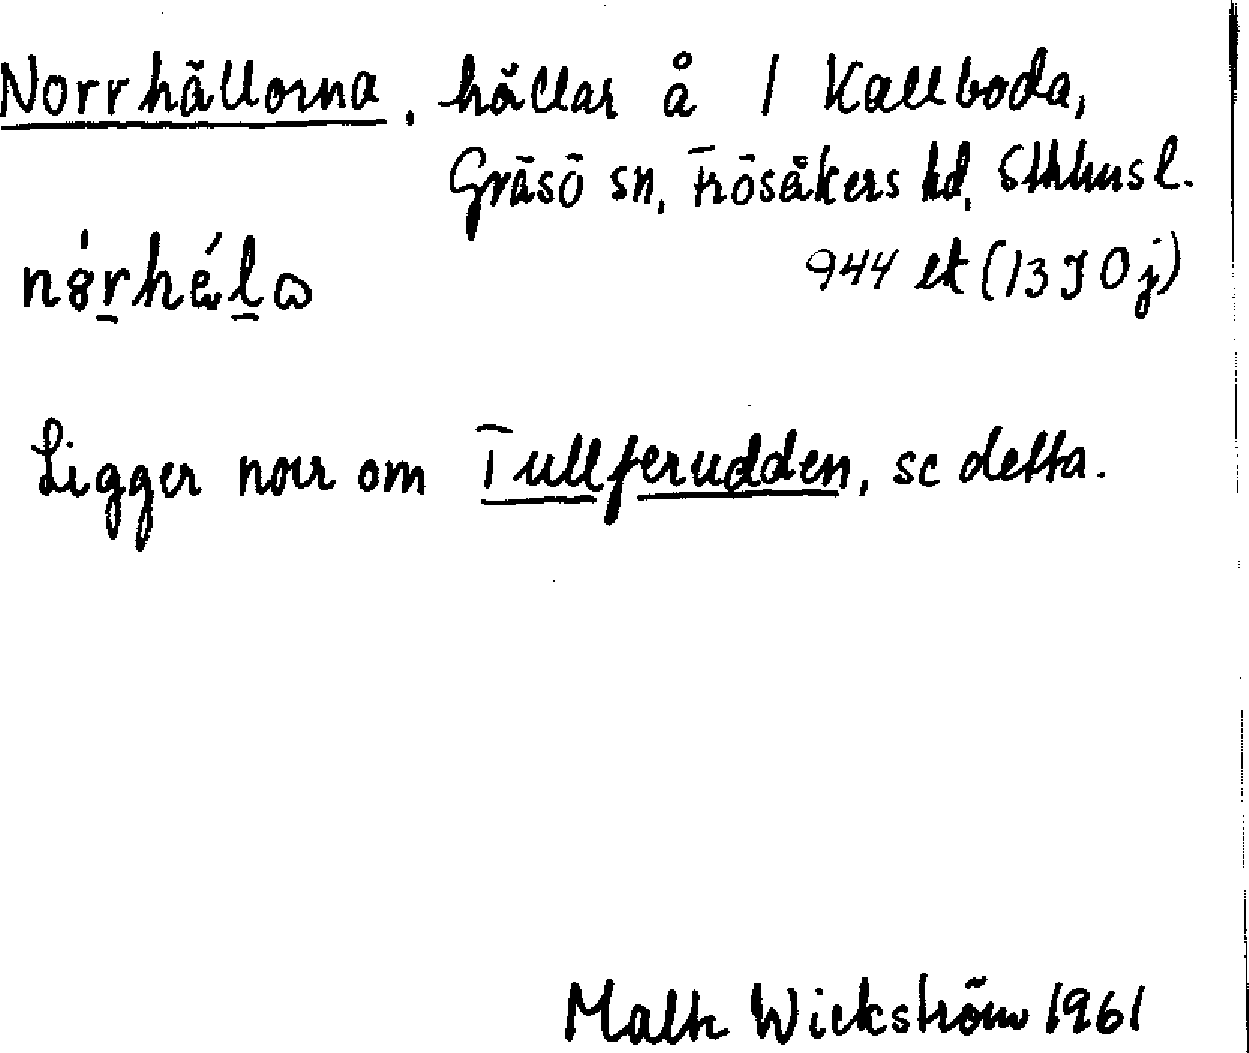 Norrhällorna, hällar å 1 Kallboda,
Gräsö sn, Frösåkers hd, Sthlmsl.
944 ek (13 J 0 j)
Ligger norr om Tullferudden, se detta.
Malte Wickström 1961